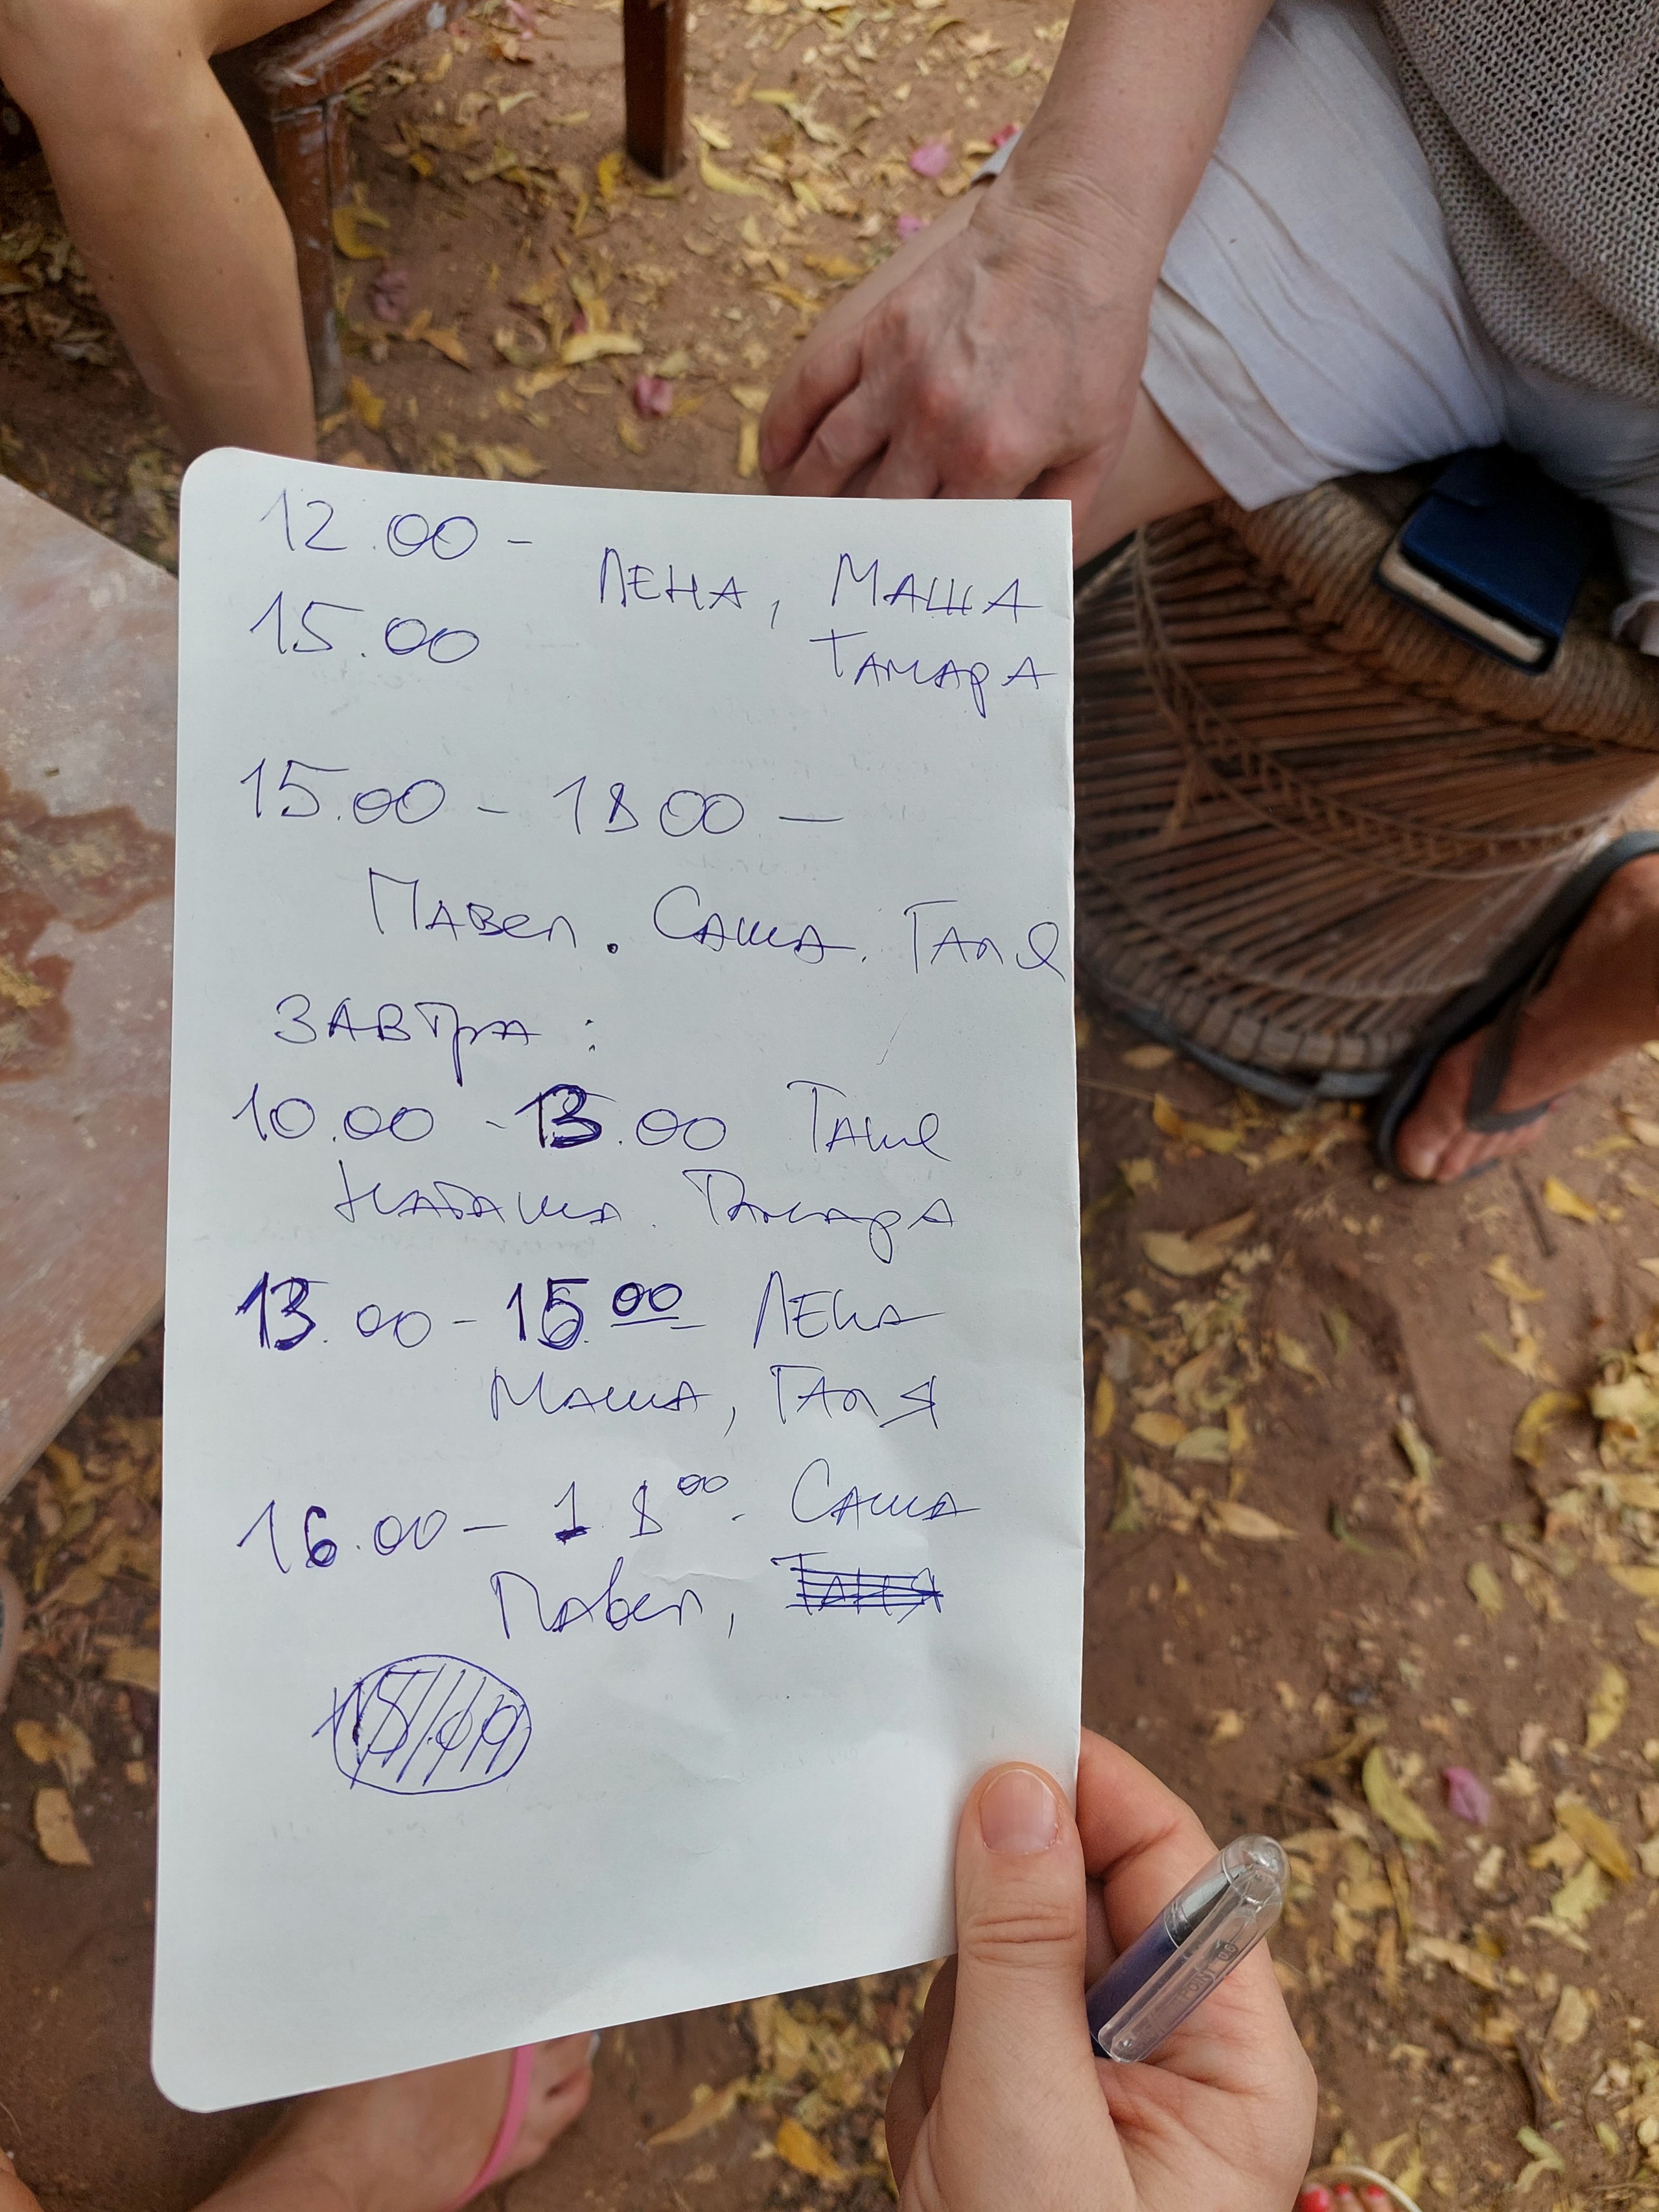 12.00 -
ЛЕНА, МАША
15.00
ТАМАРА
15.00 - 18 00 —
ПАВЕЛ. САША. ГАЛЯ
ЗАВТРА :
10.00 - 13.00 ТАНЯ
НАТАША. ТАМАРА
13.00 - 15 00 ЛЕНА
МАША, ГАЛЯ
16.00 - 18 00. САША
ПАВЕЛ,